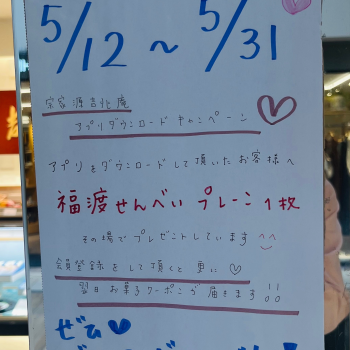 5/12 ~ 5/31
宗家 源吉兆庵
アプリダウンロード キャンペーン
アプリをダウンロードして頂いたお客様へ
福渡せんべい プレーン 1枚
その場でプレゼントしています^^
会員登録をして頂くと更に♡
翌日お菓子クーポンが届きます!!
ぜひ